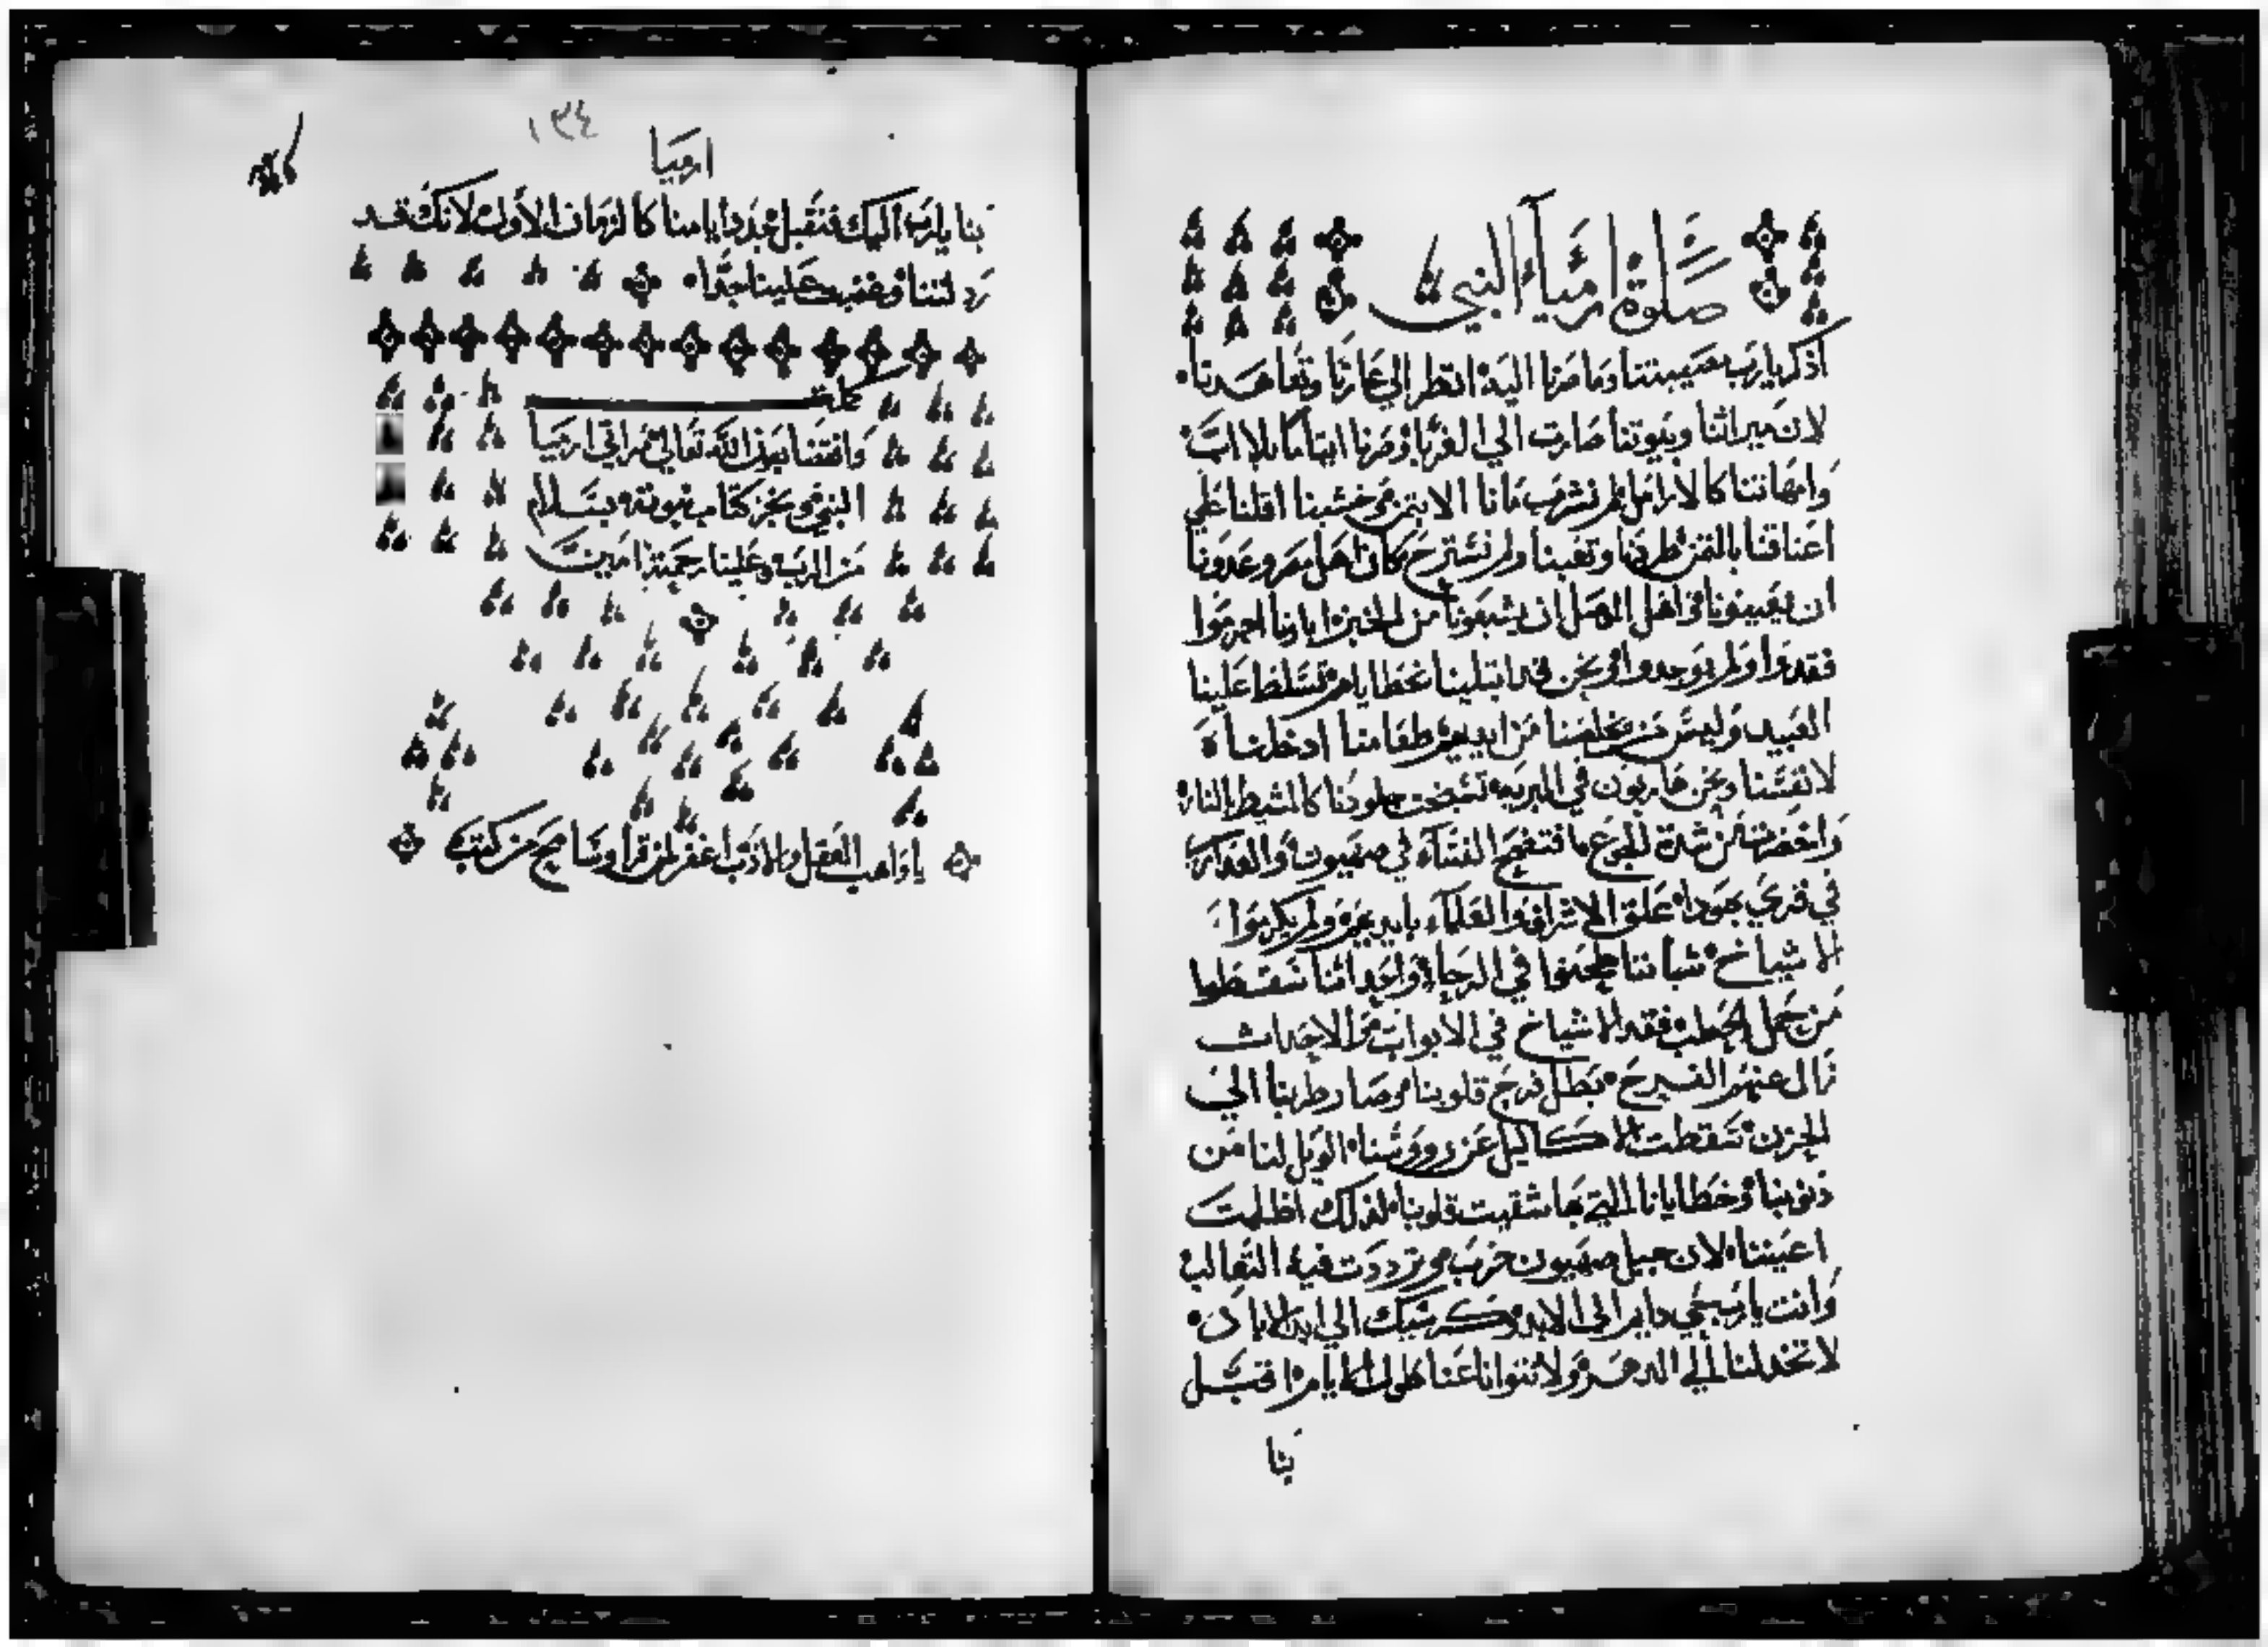 صلوة ارميا النبي
اذكر يارب مصيبتنا وما صرنا اليه انظر الي عارنا وتعاهدنا
لان ميراثنا وبيوتنا صارت الي الغربا وصرنا ايتاما بلا اب
وامهاتنا كالارامل لم نشرب مانا الا بثمن خشبنا اقلنا علي
اعناقنا بالثمن طردنا وتعبنا ولم نسترح كان اهل مصر وعدونا
ان يعينونا واهل الموصل ان يشبعونا من الخبز اباونا اجرموا
فقدوا ولم يوجدوا ونحن قد ابتلينا بخطاياهم تسلط علينا
العبيد وليس من يخلصنا من ايديهم طعامنا ادخلناه
لانفسنا ونحن هاربون في البريه تشيطت جلودنا كالمشيط بالنار
من شدة الجوع ما افتضح النساء في صهيون والعذاري
في قري يهودا علق الاشراف والعلماء بايديهم ولم يكرموا
الاشياخ شباننا طحنوا في الرحاء واحداثنا سقطوا
من حمل الحطب فقد الاشياخ في الابواب والاحداث
زال عنهم الفرح بطل فرح قلوبنا وصار طربنا الي
الحزن سقطت الاكاليل عن رووسنا الويل لنا من
ذنوبنا وخطايانا التي بها شقيت قلوبنا لذلك اظلمت
اعيننا لان جبل صهيون خرب وترددت فيه الثعالب
وانت يارب دايم الي الابد وكرسيك الي ابد الاباد
لا تخذلنا الي الدهر ولا تتوانا عنا طول الايام اقبل
بنا
١٣٤
ارميا
بنا يارب اليك فنقبل جدد ايامنا كالزمان الاول لانك قد
رذلتنا وغضبت علينا جدا
كملت
وافقنا بعون الله تعالي مراثي ارميا
النبي ونجز كتاب نبوته بسلام
من الرب وعلينا رحمته امين
يا واهب العقل والادب اغفر لمن قرا وسامح من كتب